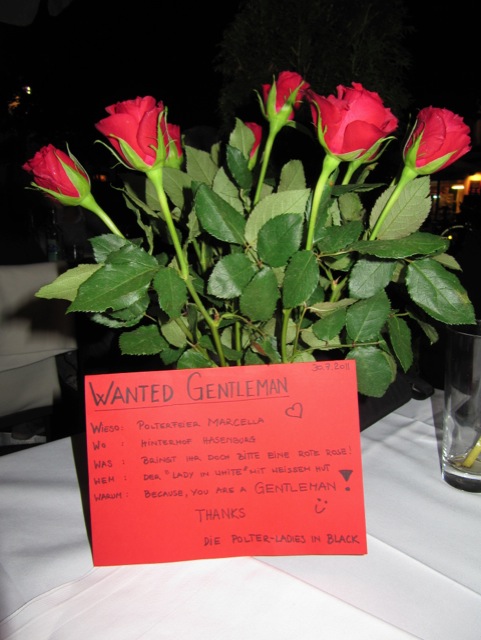 30.7.2011
WANTED GENTLEMAN
WIESO: POLTERFEIER MARCELLA
WO : HINTERHOF HASENBURG
WAS : BRINGT IHR DOCH BITTE EINE ROTE ROSE!
WEM : DER "LADY IN WHITE" MIT WEISSEM HUT
WARUM: BECAUSE, YOU ARE A GENTLEMAN!
THANKS
DIE POLTER-LADIES IN BLACK